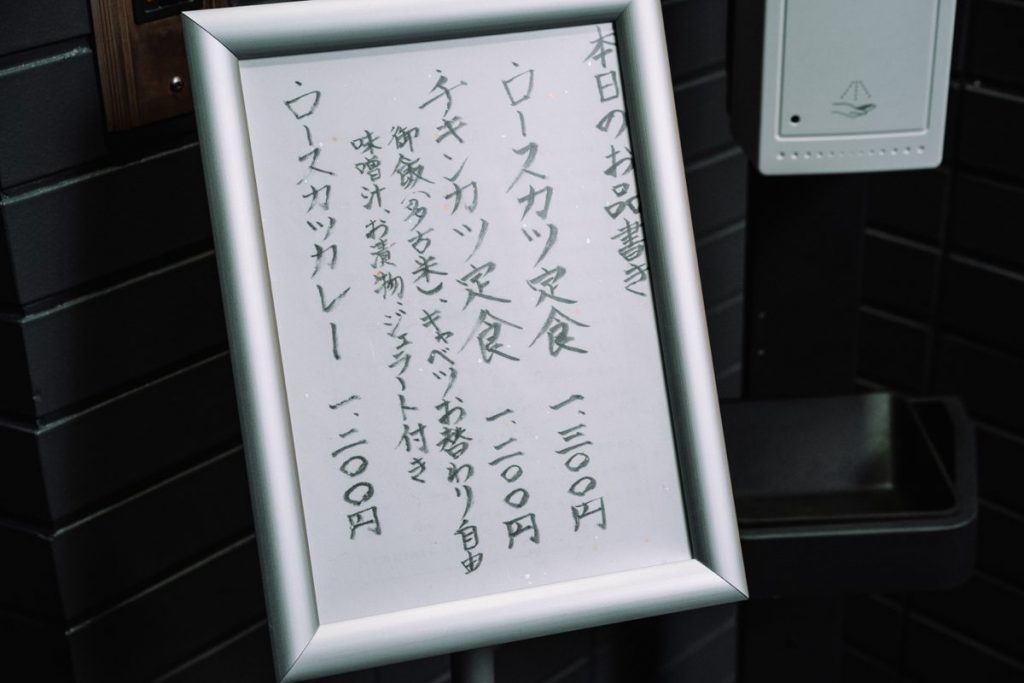 本日のお品書き
ロースカツ定食 一、三〇〇円
チキンカツ定食 一、二〇〇円
御飯(多古米)、キャベツお替わり自由
味噌汁、お漬物、ジェラート付き
ロースカツカレー 一、二〇〇円